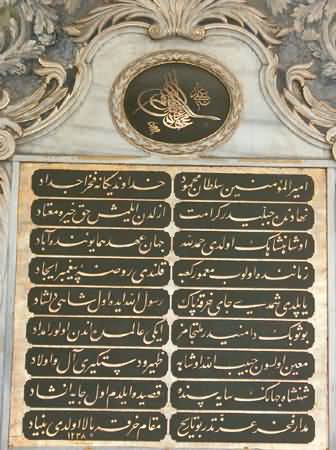 امیرالمؤمنین سلطان محمود خداوند یگانه فخر اجداد
نهادندن جبلیدر کرامت ازلدن ایلمش حق خیره معتاد
او شاهنشاهک اولدی حمدلله جهان عهد همایوننده آباد
زماننده اولوب معمور کعبه قلندی روضهٔ پیغمبر ایجاد
یاپلدی جای خرقه پاک رسول الله ایده اول شاهی دلشاد
بو ثوبک دامننه در التجامز ایکی عالمده اندن اولور امداد
معین اولسون حبیب الله او شاهه ظهیر و دستگیری آل و اولاد
شهنشاه جهانک سایه سنده قصیده ایلدم اول جایه انشاد
مدار فخر عزتدر بو تاریخ مقام خرقه بالا اولدی بنیاد
۱۲۳۸